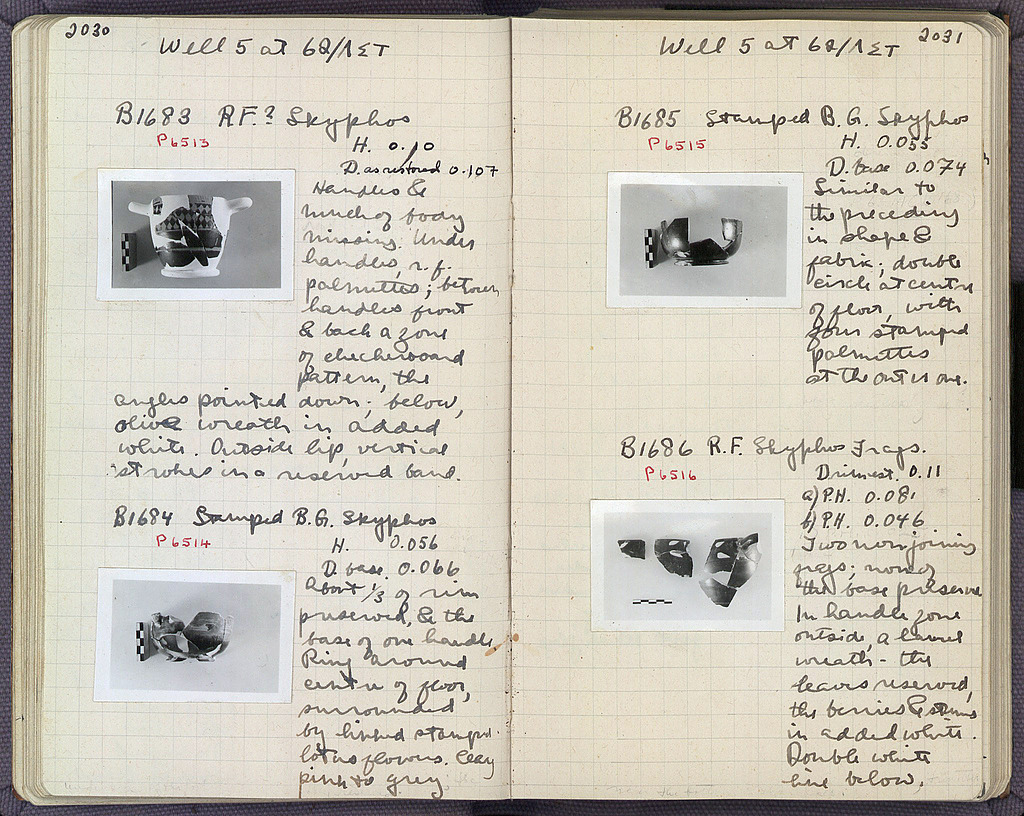 2030
Well 5 at 62/ΛΣΤ
B1683 R.F.? Skyphos
P6513
H. 0.10
D. as restored 0.107
Handles &
much of body
missing. Under
handles, r.f.
palmettes; between
handles front
& back a zone
of checkerboard
pattern, the
angles pointed down; below,
olive wreath in added
white. Outside lip, vertical
strokes in a reserved band.
B1684 Stamped B.G. Skyphos
P6514
H. 0.056
D. base. 0.066
About 1/3 of rim
preserved, & the
base of one handle
Ring around
centre of floor,
surrounded
by linked stamped
lotus flowers. Clay
pink to grey
2031
Well 5 at 62/ΛΣΤ
B1685 Stamped B.G. Skyphos
P6515
H. 0.055
D. base 0.074
Similar to
the preceding
in shape &
fabric; double
circle at centre
of floor, with
four stamped
palmettes
at the outer one.
B1686 R.F. Skyphos Frags.
P6516
D. rim est. 0.11
a) P.H. 0.081
b) P.H. 0.046
Two non joining
frags; none of
the base preserved
In handle zone
outside, a laurel
wreath - the
leaves reserved,
the berries & stems
in added white.
Double white
line below.